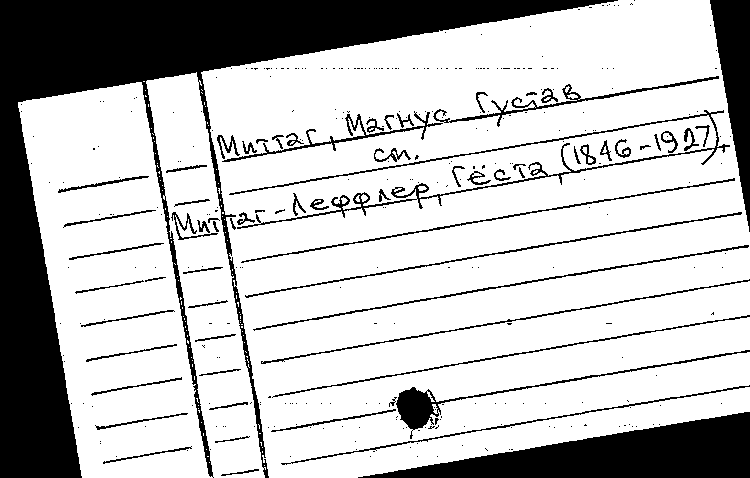 Миттаг, Магнус Густав
см.
Миттаг-Леффлер, Гёста, (1846-1927),